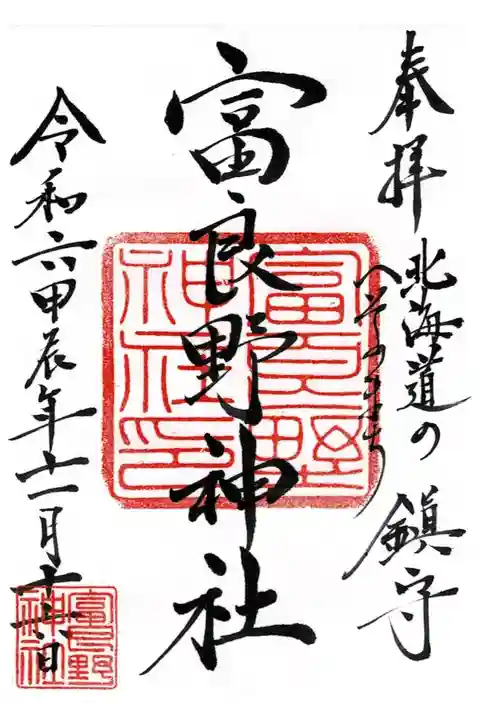 奉拝 北海道の
へそのまち
鎮守
富良野神社
富良野
神社印
令和六甲辰年十一月十六日
富良野
神社